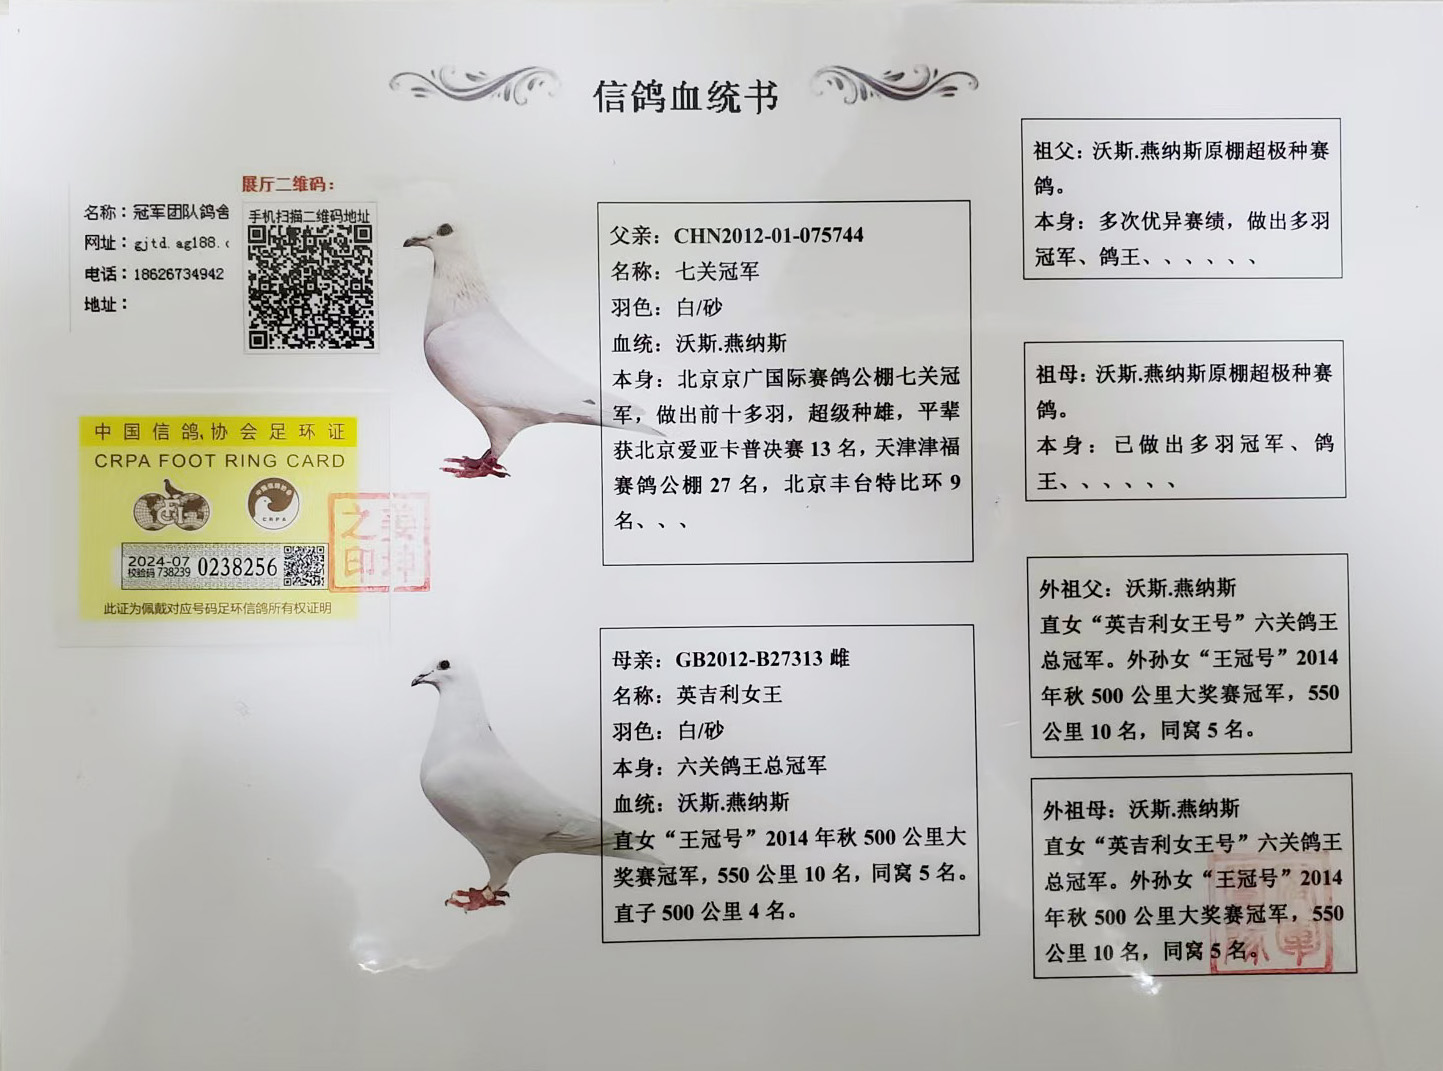 信鸽血统书
展厅二维码：
名称：冠军团队鸽舍
网址：gjtd.ag188.
电话：18626734942
地址：
手机扫描二维码地址
中国信鸽协会足环证
CRPA FOOT RING CARD
CRPA
2024-07
校验码 738239
0238256
此证为佩戴对应号码足环信鸽所有权证明
姜坤
之印
父亲：CHN2012-01-075744
名称：七关冠军
羽色：白/砂
血统：沃斯.燕纳斯
本身：北京京广国际赛鸽公棚七关冠
军，做出前十多羽，超级种雄，平辈
获北京爱亚卡普决赛 13 名，天津津福
赛鸽公棚 27 名，北京丰台特比环 9
名、、、
母亲：GB2012-B27313 雌
名称：英吉利女王
羽色：白/砂
本身：六关鸽王总冠军
血统：沃斯.燕纳斯
直女“王冠号”2014 年秋 500 公里大
奖赛冠军，550 公里 10 名，同窝 5 名。
直子 500 公里 4 名。
祖父：沃斯.燕纳斯原棚超极种赛
鸽。
本身：多次优异赛绩，做出多羽
冠军、鸽王、、、、、、
祖母：沃斯.燕纳斯原棚超极种赛
鸽。
本身：已做出多羽冠军、鸽
王、、、、、、
外祖父：沃斯.燕纳斯
直女“英吉利女王号”六关鸽王
总冠军。外孙女“王冠号”2014
年秋 500 公里大奖赛冠军，550
公里 10 名，同窝 5 名。
外祖母：沃斯.燕纳斯
直女“英吉利女王号”六关鸽王
总冠军。外孙女“王冠号”2014
年秋 500 公里大奖赛冠军，550
公里 10 名，同窝 5 名。